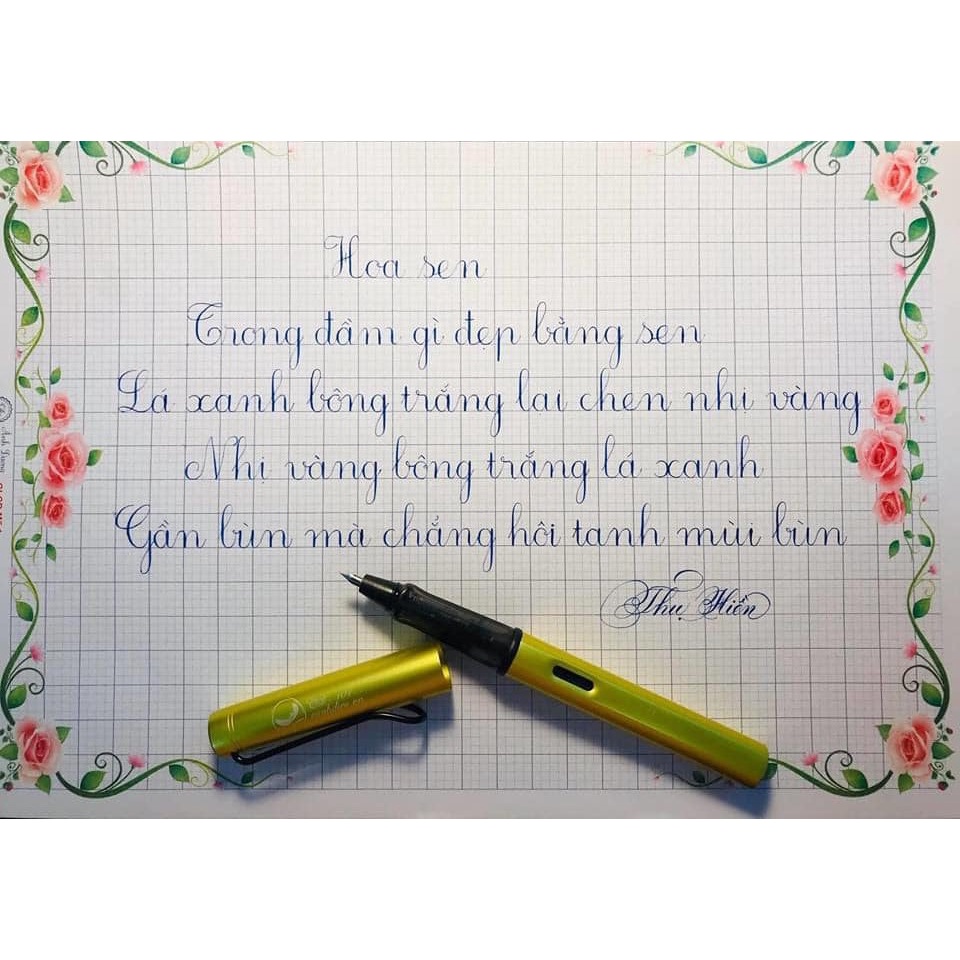 Hoa sen
Trong đầm gì đẹp bằng sen
Lá xanh bông trắng lại chen nhị vàng
Nhị vàng bông trắng lá xanh
Gần bùn mà chẳng hôi tanh mùi bùn
Thu Hiền